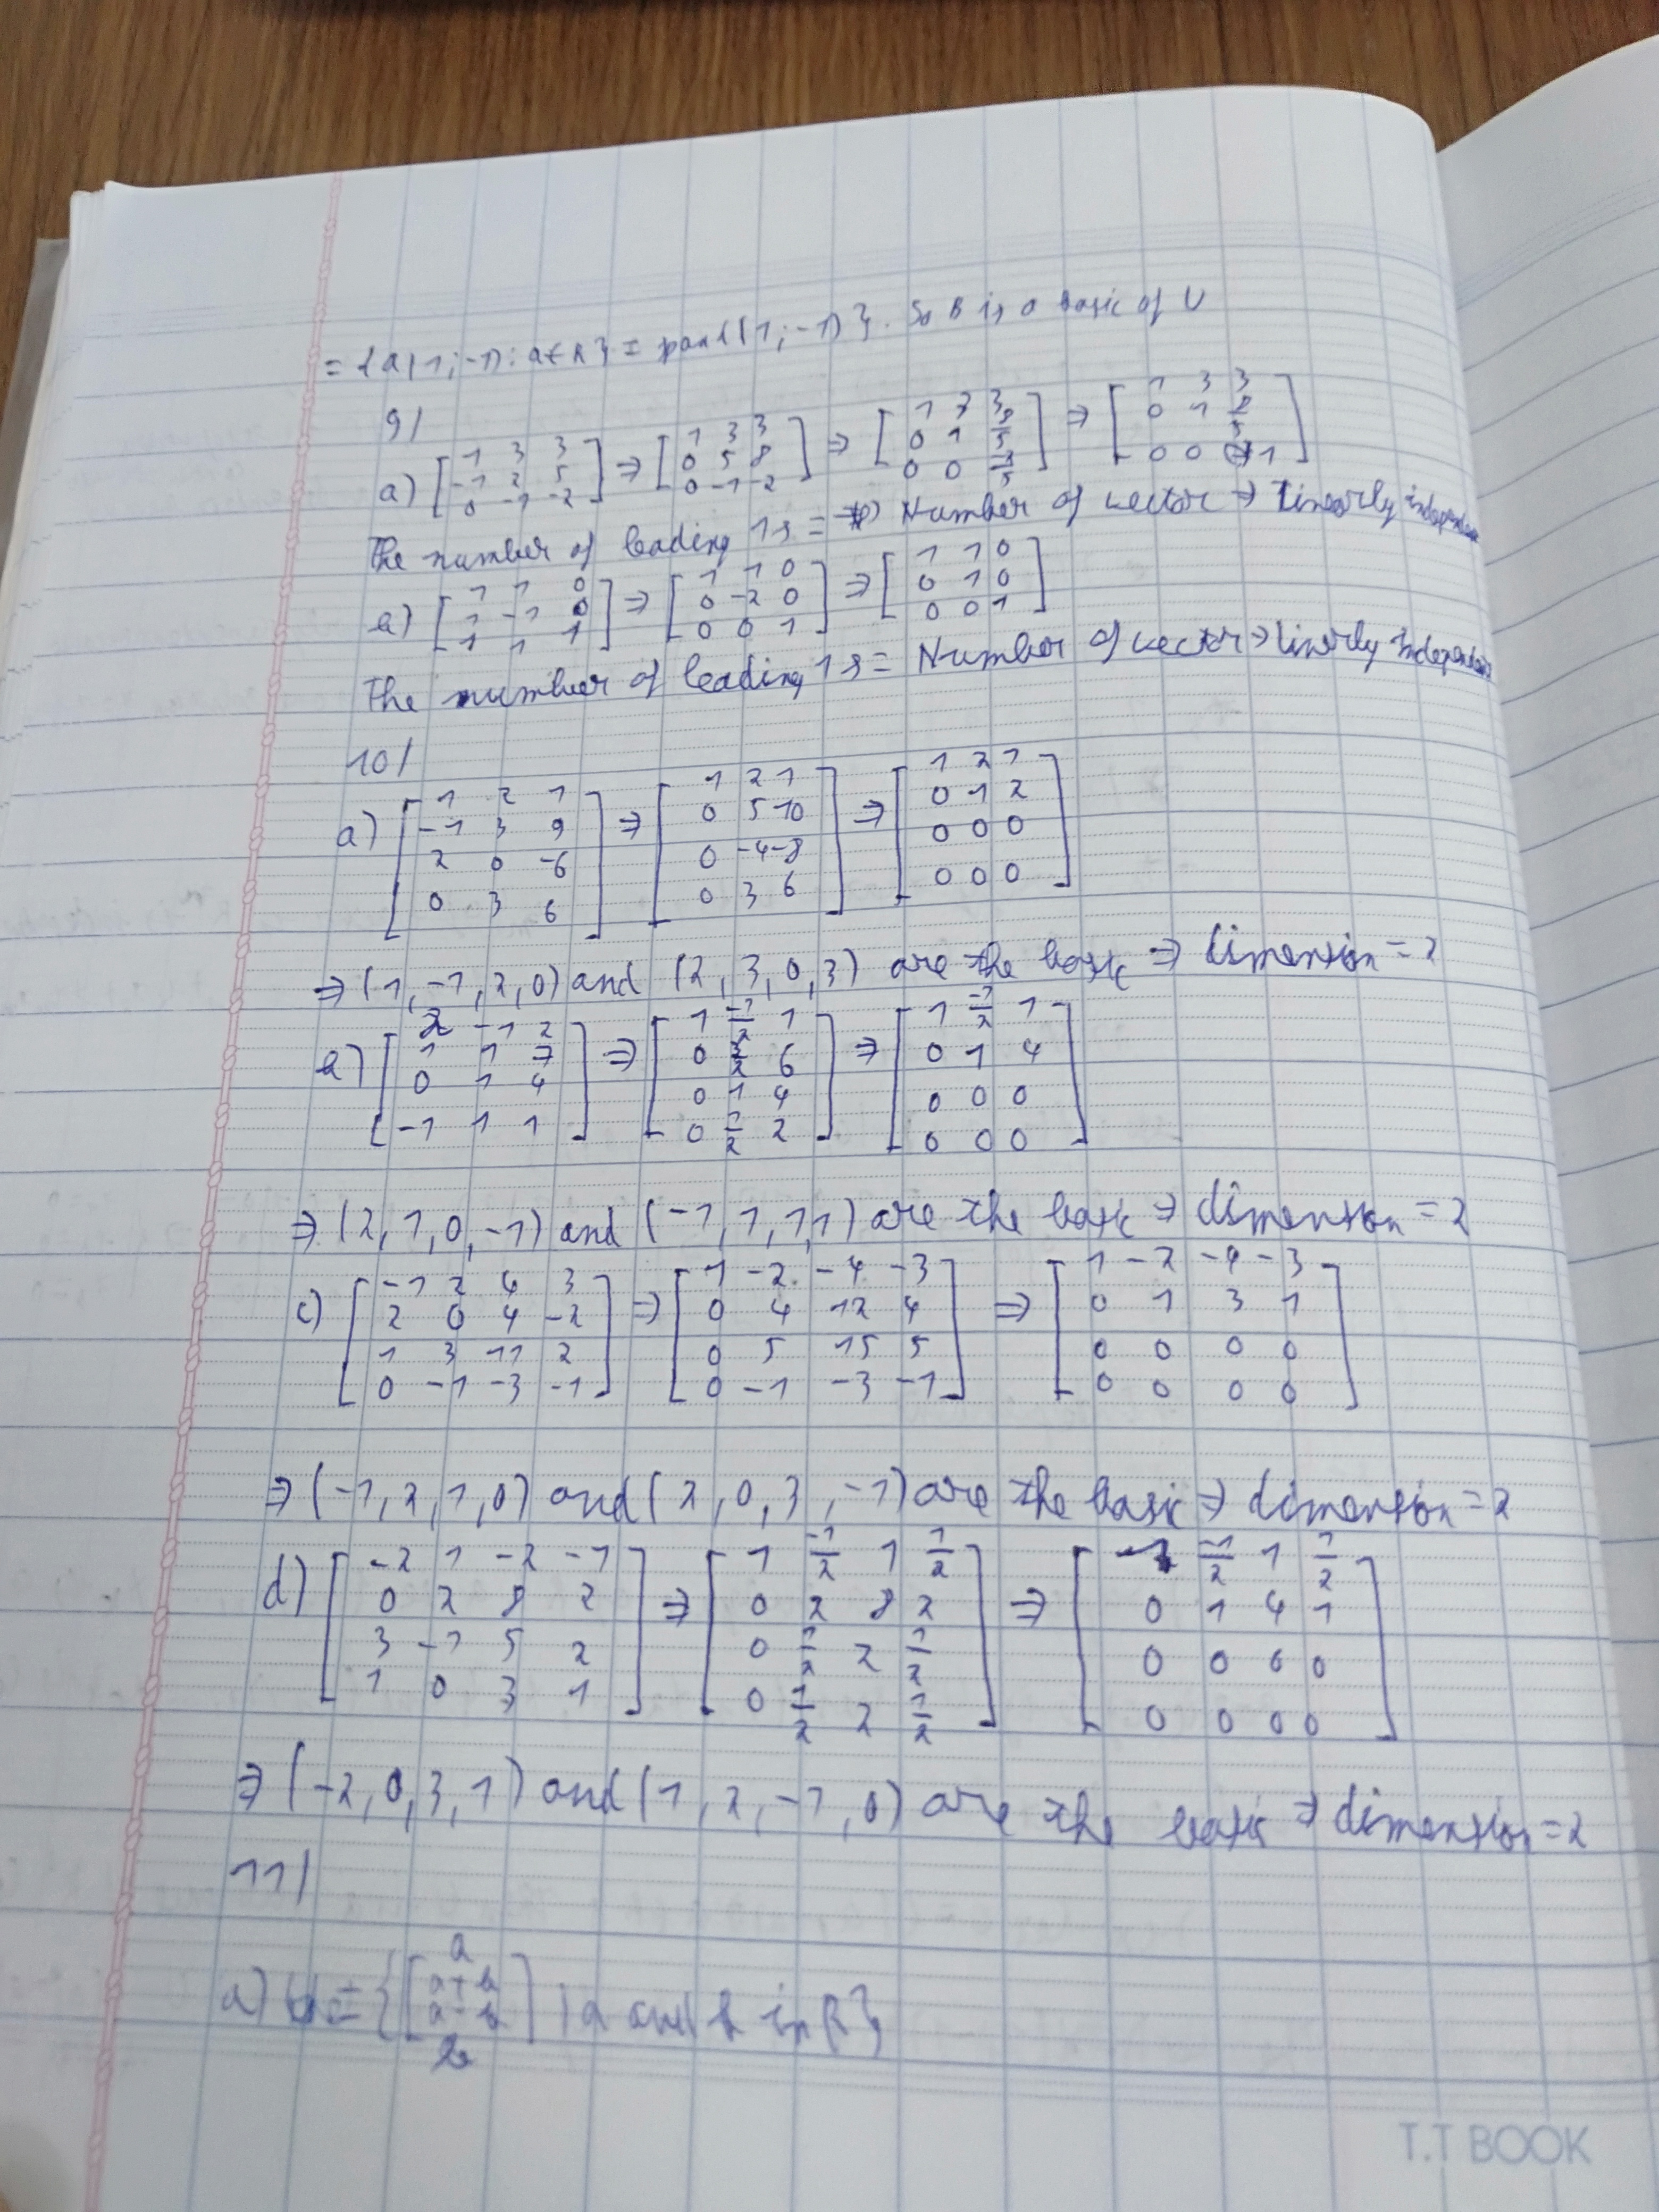 = {a(1;-1): a∈R} = span{(1;-1)}. So B is a basic of U
9/
a) [1 3 3; -1 2 5; 0 -1 -2] ⇒ [1 3 3; 0 5 8; 0 -1 -2] ⇒ [1 3 3; 0 1 8/5; 0 0 -2/5] ⇒ [1 3 3; 0 1 8/5; 0 0 1]
The number of leading 1s = Number of vector ⇒ linearly independen
b) [1 1 0; 1 -1 0; 1 1 1] ⇒ [1 1 0; 0 -2 0; 0 0 1] ⇒ [1 1 0; 0 1 0; 0 0 1]
The number of leading 1s = Number of vector ⇒ linerly independen
10/
a) [1 2 1; -1 3 9; 2 0 -6; 0 3 6] ⇒ [1 2 1; 0 5 10; 0 -4 -8; 0 3 6] ⇒ [1 2 1; 0 1 2; 0 0 0; 0 0 0]
⇒ (1,-1,2,0) and (2,3,0,3) are the basic ⇒ dimension = 2
b) [2 -1 2; 1 1 7; 0 1 4; -1 1 1] ⇒ [1 -1/2 1; 0 3/2 6; 0 1 4; 0 1/2 2] ⇒ [1 -1/2 1; 0 1 4; 0 0 0; 0 0 0]
⇒ (2,1,0,-1) and (-1,1,1,1) are the basic ⇒ dimension = 2
c) [-1 2 4 3; 2 0 4 -2; 1 3 11 2; 0 -1 -3 -1] ⇒ [1 -2 -4 -3; 0 4 12 4; 0 5 15 5; 0 -1 -3 -1] ⇒ [1 -2 -4 -3; 0 1 3 1; 0 0 0 0; 0 0 0 0]
⇒ (-1,2,1,0) and (2,0,3,-1) are the basic ⇒ dimension = 2
d) [-2 1 -2 -1; 0 2 8 2; 3 -1 5 2; 1 0 3 1] ⇒ [1 -1/2 1 1/2; 0 2 8 2; 0 1/2 2 1/2; 0 1/2 2 1/2] ⇒ [1 -1/2 1 1/2; 0 1 4 1; 0 0 0 0; 0 0 0 0]
⇒ (-2,0,3,1) and (1,2,-1,0) are the basic ⇒ dimension = 2
11/
a) = {[a; a+b; a-b; b] | a and b in R}
T.T BOOK